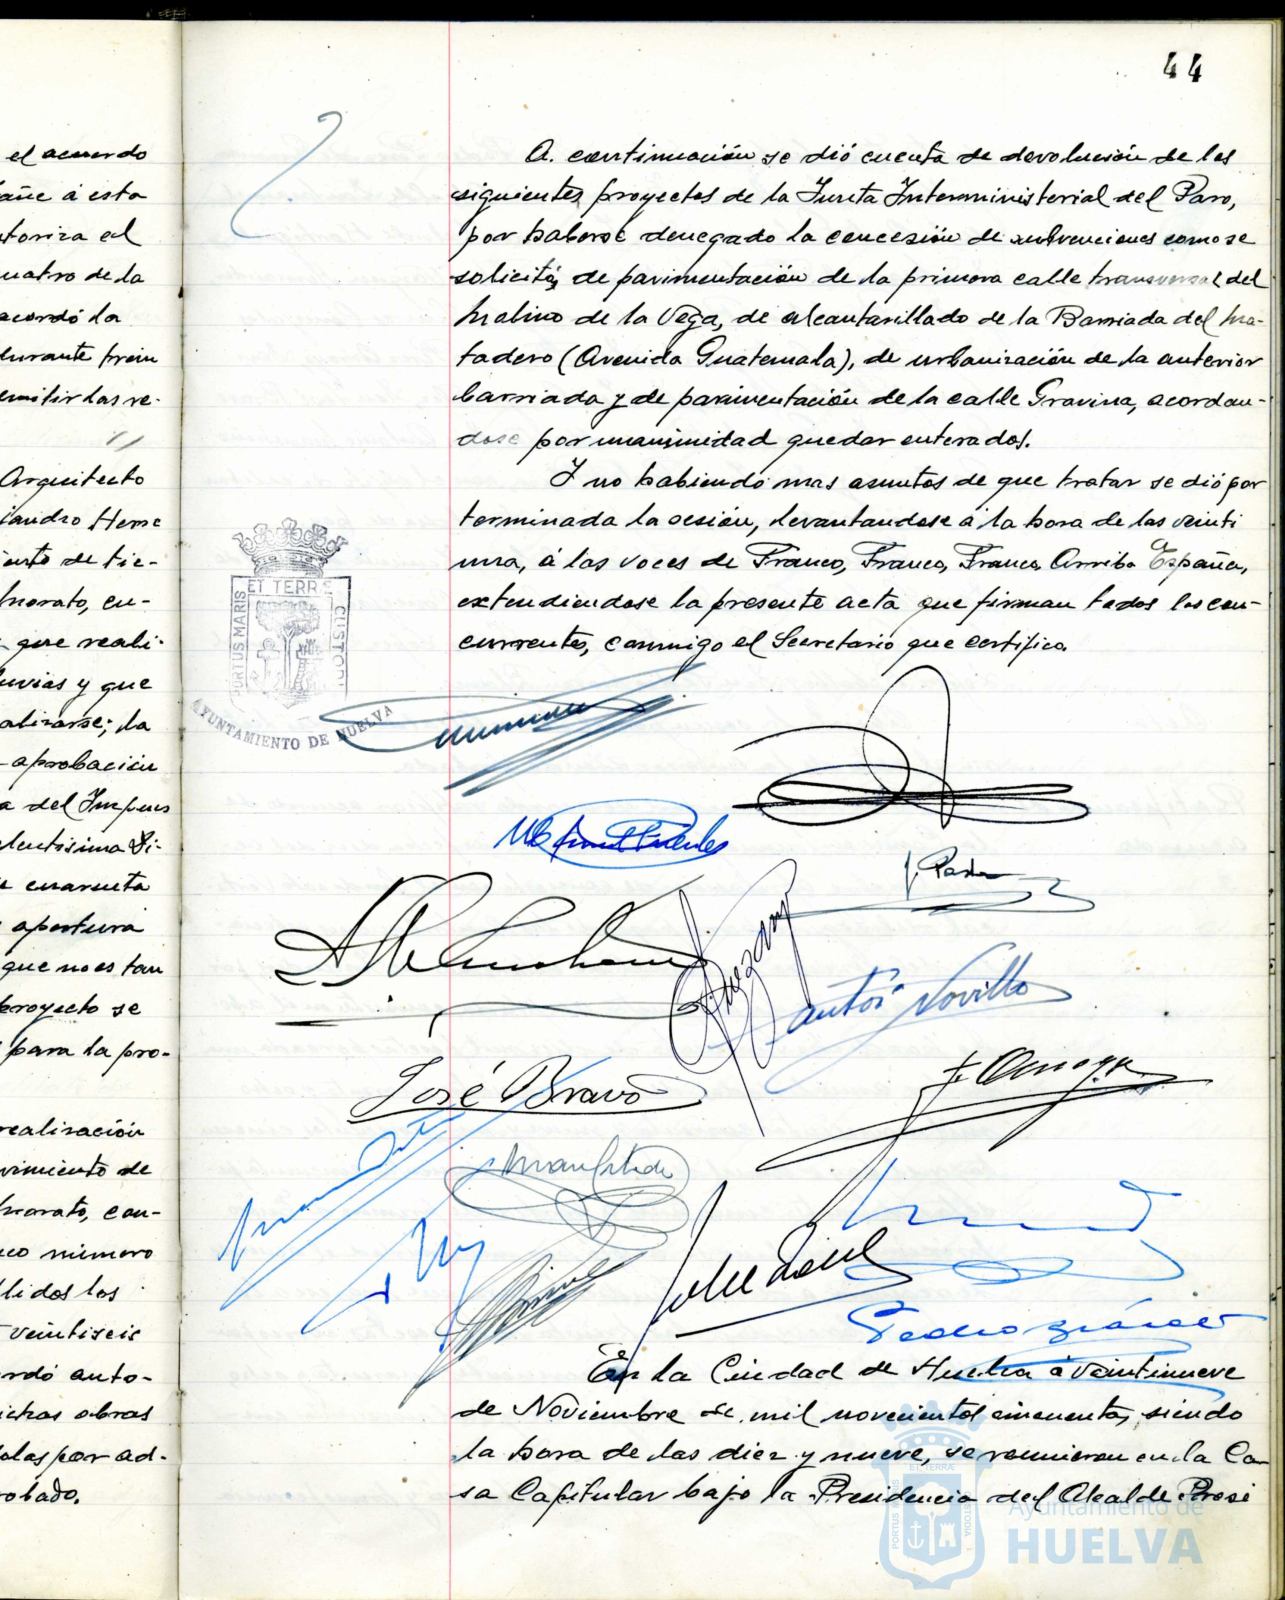 44
el acuerdo
añe á esta
toriza al
uatro de la
acordó la
durante
emitir las re-
Arquitecto
jandro Herre
ento de tie-
morato, en-
que reali-
luvias y que
alizarse; la
aprobación
a del
lentisima Di-
cuarenta
apertura
que no es tan
proyecto se
para la pro-
realización
vimiento de
morato, con-
co número
lidos los
veintiseis
rdó auto-
ichas obras
olas por ad-
robado.
A continuación se dió cuenta de devolución de los
siguientes proyectos de la Junta Interministerial del Paro,
por haberse denegado la concesión de subvenciones como se
solicitó, de pavimentación de la primera calle transversal del
Molino de la Vega, de alcantarillado de la Barriada del Ma-
tadero (Avenida Guatemala), de urbanización de la anterior
barriada y de pavimentación de la calle Gravina, acordan-
dose por unanimidad quedar enterados.
Y no habiendo mas asuntos de que tratar se dió por
terminada la sesión, levantandose á la hora de las veinti
una, á las voces de Franco, Franco, Franco Arriba España,
extendiendose la presente acta que firman todos los con-
currentes, conmigo el Secretario que certifico.
PORTUS MARIS ET TERRE CUSTODIA
AYUNTAMIENTO DE HUELVA
José Bravo
En la Ciudad de Huelva á veintinueve
de Noviembre de mil novecientos cincuenta, siendo
la hora de las diez y nueve, se reunieron en la Ca
sa Capitular bajo la Presidencia del Alcalde Presi
Ayuntamiento de
HUELVA